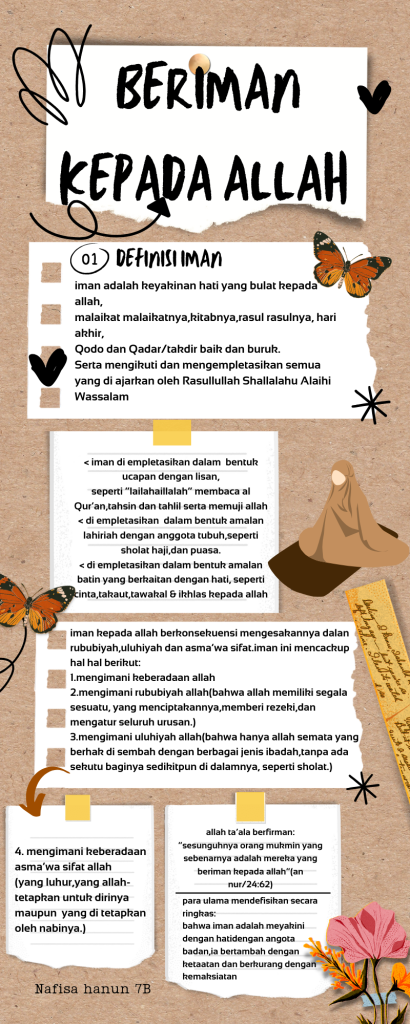 BERIMAN
KEPADA ALLAH
01 DEFINISI IMAN
iman adalah keyakinan hati yang bulat kepada
allah,
malaikat malaikatnya,kitabnya,rasul rasulnya, hari
akhir,
Qodo dan Qadar/takdir baik dan buruk.
Serta mengikuti dan mengempletasikan semua
yang di ajarkan oleh Rasullullah Shallalahu Alaihi
Wassalam
< iman di empletasikan dalam bentuk
ucapan dengan lisan,
seperti "lailahaillalah" membaca al
Qur'an,tahsin dan tahlil serta memuji allah
< di empletasikan dalam bentuk amalan
lahiriah dengan anggota tubuh,seperti
sholat haji,dan puasa.
< di empletasikan dalam bentuk amalan
batin yang berkaitan dengan hati, seperti
cinta,takaut,tawakal & ikhlas kepada allah
iman kepada allah berkonsekuensi mengesakannya dalan
rububiyah,uluhiyah dan asma'wa sifat.iman ini mencackup
hal hal berikut:
1.mengimani keberadaan allah
2.mengimani rububiyah allah(bahwa allah memiliki segala
sesuatu, yang menciptakannya,memberi rezeki,dan
mengatur seluruh urusan.)
3.mengimani uluhiyah allah(bahwa hanya allah semata yang
berhak di sembah dengan berbagai jenis ibadah,tanpa ada
sekutu baginya sedikitpun di dalamnya, seperti sholat.)
4. mengimani keberadaan
asma'wa sifat allah
(yang luhur,yang allah-
tetapkan untuk dirinya
maupun yang di tetapkan
oleh nabinya.)
allah ta'ala berfirman:
"sesungguhnya orang mukmin yang
sebenarnya adalah mereka yang
beriman kepada allah"(an
nur/24:62)
para ulama mendefisikan secara
ringkas:
bahwa iman adalah meyakini
dengan hatidengan angota
badan,ia bertambah dengan
ketaatan dan berkurang dengan
kemaksiatan
Nafisa hanun 7B